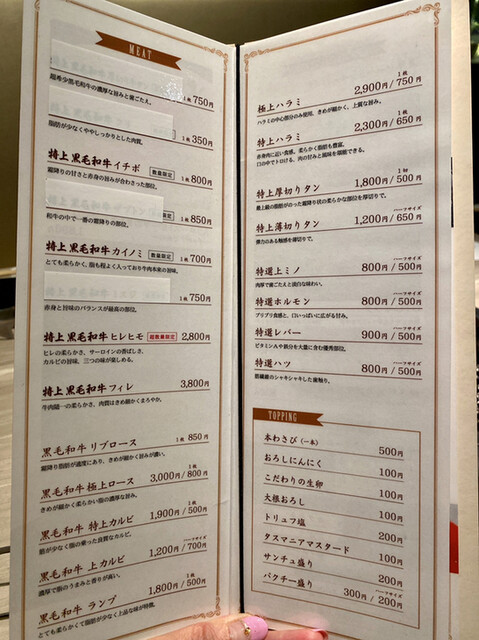 MEAT
超希少黒毛和牛の濃厚な旨みと歯ごたえ。
1枚 750円
脂肪が少なくややしっかりとした肉質。
1枚 350円
特上黒毛和牛イチボ 数量限定 1枚 800円
霜降りの甘さと赤身の旨みが合わさった部位。
1枚 850円
和牛の中で一番の霜降りの部位。
特上黒毛和牛カイノミ 数量限定 1枚 700円
とても柔らかく、脂も程よく入っており牛肉本来の旨味。
1枚 750円
赤身と旨味のバランスが最高の部位。
特上黒毛和牛ヒレヒモ 超数量限定 2,800円
ヒレの柔らかさ、サーロインの香ばしさ、
カルビの旨味、三つの味が楽しめる。
特上黒毛和牛フィレ 3,800円
牛肉随一の柔らかさ、肉質はきめ細かくまろやか。
黒毛和牛 リブロース 1枚 850円
霜降り脂肪が適度にあり、きめが細かく旨みが濃い。
黒毛和牛 極上ロース 3,000円 / 1枚 800円
きめが細かく柔らかい脂の濃厚な旨み。
黒毛和牛 特上カルビ 1,900円 / 1枚 500円
筋が少なく脂の乗った良質なカルビ。
黒毛和牛 上カルビ 1,200円 / ハーフサイズ 700円
濃厚で脂のうまみと香りが高い。
黒毛和牛 ランプ 1,800円 / 1枚 500円
とても柔らかくて脂肪が少なく上品な味が特徴。
極上ハラミ 2,900円 / 1枚 750円
ハラミの中心部分のみ使用、きめが細かく、上質な旨み。
特上ハラミ 2,300円 / 1枚 650円
赤身肉に近い食感、柔らかく脂肪も豊富。
口の中でトロける、肉の甘みと風味を堪能できる。
特上厚切りタン 1,800円 / 1切 500円
最上級の脂肪が白った霜降り状の柔らかな部位を厚切りで。
特上薄切りタン 1,200円 / ハーフサイズ 650円
弾力のある触感を薄切りで。
特選上ミノ 800円 / ハーフサイズ 500円
肉厚で歯ごたえと淡白な味わい。
特選ホルモン 800円 / ハーフサイズ 500円
プリプリ食感と、口いっぱいに広がる甘み。
特選レバー 900円 / ハーフサイズ 500円
ビタミンAや鉄分を大量に含む優秀部位。
特選ハツ 800円 / ハーフサイズ 500円
筋繊維のシャキシャキした歯触り。
TOPPING
本わさび（一本） 500円
おろしにんにく 100円
こだわりの生卵 100円
大根おろし 100円
トリュフ塩 200円
タスマニアマスタード 100円
サンチュ盛り 200円
パクチー盛り 300円 / ハーフサイズ 200円